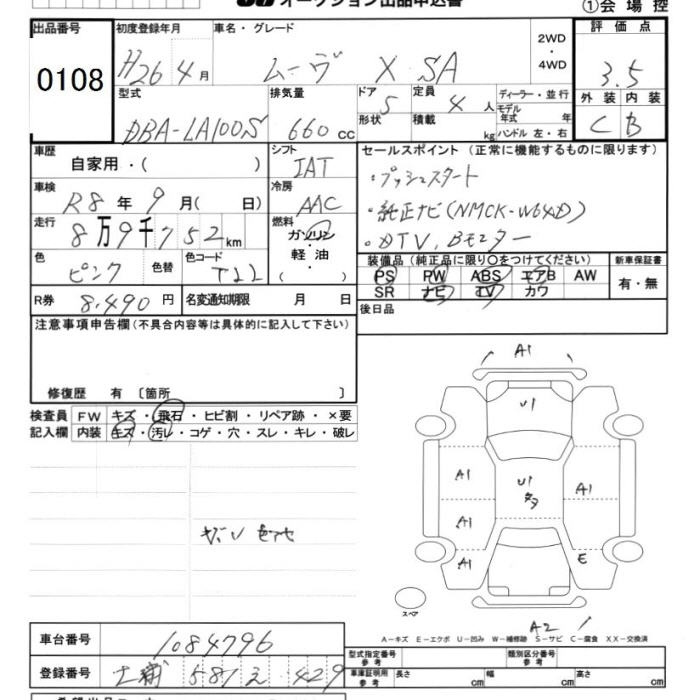 オークション出品申込書
①会場控
出品番号 0108
初度登録年月 H26年4月
車名・グレード ムーヴ X SA
2WD・4WD
評価点 3.5
型式 DBA-LA100S
排気量 660cc
ドア 5
形状
定員 4人
積載 kg
ディーラー・並行
モデル年式 年
ハンドル 左・右
外装 C
内装 B
車歴 自家用・( )
シフト IAT
セールスポイント (正常に機能するものに限ります)
・プッシュスタート
・純正ナビ(NMCK-W64D)
・DTV, Bモニター
車検 R8年9月( 日)
冷房 AAC
走行 8万9千752km
燃料 ガソリン・軽油・( )
色 ピンク 色替
色コード T22
装備品 (純正品に限り○をつけてください)
PS PW ABS エアB AW
SR ナビ TV カワ
新車保証書 有・無
R券 8,490円
名変通知期限 月 日
後日品
注意事項申告欄(不具合内容等は具体的に記入して下さい)
修復歴 有〔箇所 〕
検査員記入欄
FW キズ・飛石・ヒビ割・リペア跡・×要
内装 キズ・汚レ・コゲ・穴・スレ・キレ・破レ
A1
U1
A1
U1
多
A1
A1
A1
E
スペア
A2
A-キズ E-エクボ U-凹み W-補修跡 S-サビ C-腐食 XX-交換済
車台番号 1084796
登録番号 土浦 581 え 429
型式指定番号 参考
類別区分番号 参考
車庫証明用 参考 長さ cm 幅 cm 高さ cm